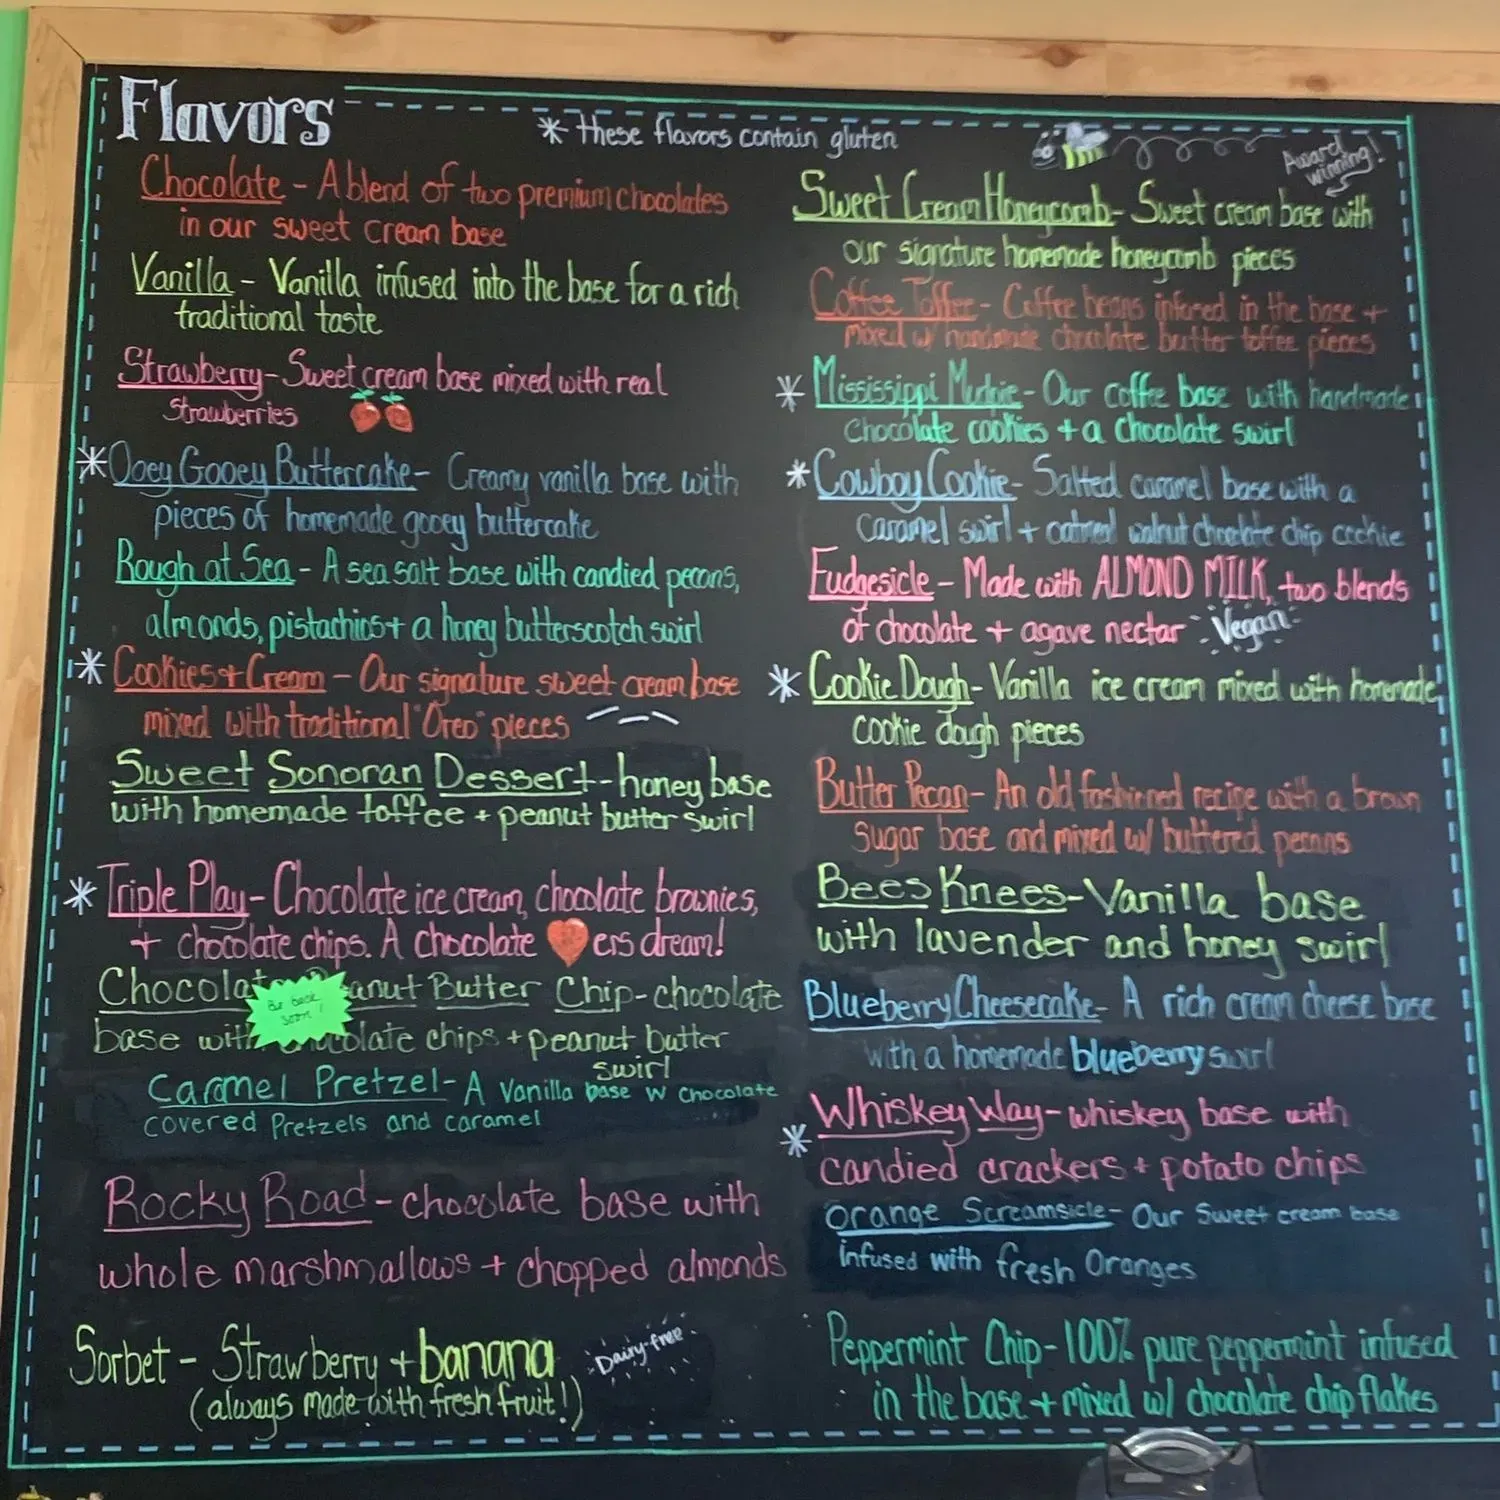 Flavors
* these flavors contain gluten
Chocolate - A blend of two premium chocolates
in our sweet cream base
Vanilla - Vanilla infused into the base for a rich
traditional taste
Strawberry - Sweet cream base mixed with real
Strawberries
* Ooey Gooey Buttercake - Creamy vanilla base with
pieces of homemade gooey buttercake
Rough at Sea - A sea salt base with candied pecans,
almonds, pistachios + a honey butterscotch swirl
* Cookies + Cream - Our signature sweet cream base
mixed with traditional "Oreo" pieces
Sweet Sonoran Dessert - honey base
with homemade toffee + peanut butter swirl
* Triple Play - Chocolate ice cream, chocolate brownies,
+ chocolate chips. A chocolate ❤ers dream!
Chocola anut Butter Chip - chocolate
Be back
soon!
base with chocolate chips + peanut butter
swirl
Caramel Pretzel - A vanilla base W chocolate
covered Pretzels and caramel
Rocky Road - chocolate base with
whole marshmallows + chopped almonds
Sorbet - Strawberry + banana
Dairy-free
(always made with fresh fruit!)
Award
winning!
Sweet Cream Honeycomb - Sweet cream base with
our signature homemade honeycomb pieces
Coffee Toffee - Coffee beans infused in the base +
mixed w/ handmade chocolate butter toffee pieces
* Mississippi Mudpie - Our coffee base with handmade
chocolate cookies + a chocolate swirl
* Cowboy Cookie - Salted caramel base with a
caramel swirl + oatmeal walnut chocolate chip cookie
Fudgesicle - Made with ALMOND MILK, two blends
of chocolate + agave nectar Vegan
* Cookie Dough - Vanilla ice cream mixed with homemade
cookie dough pieces
Butter Pecan - An old fashioned recipe with a brown
sugar base and mixed w/ buttered pecans
Bees Knees - Vanilla base
with lavender and honey swirl
Blueberry Cheesecake - A rich cream cheese base
with a homemade blueberry swirl
* Whiskey Way - whiskey base with
candied crackers + potato chips
Orange Screamsicle - Our Sweet cream base
infused with fresh Oranges
Peppermint Chip - 100% pure peppermint infused
in the base + mixed w/ chocolate chip flakes